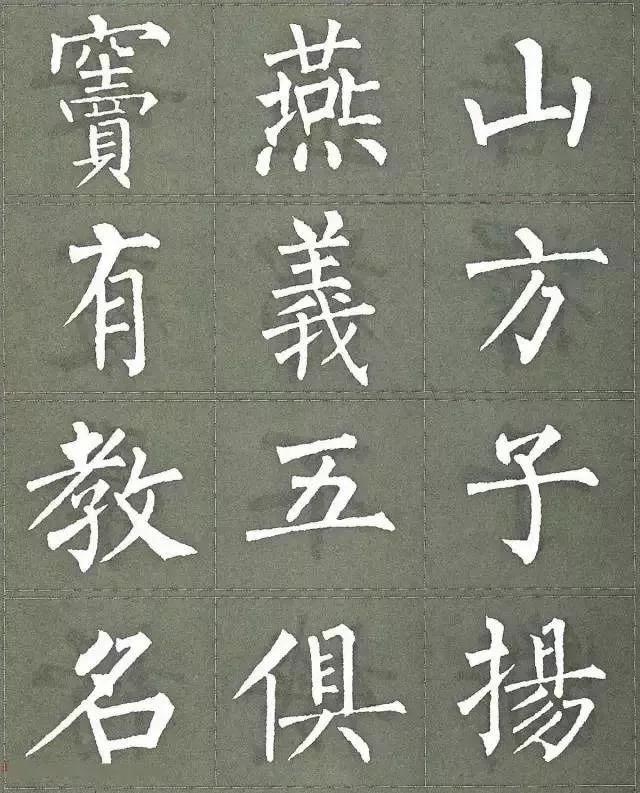 竇燕山
有義方
教五子
名俱揚